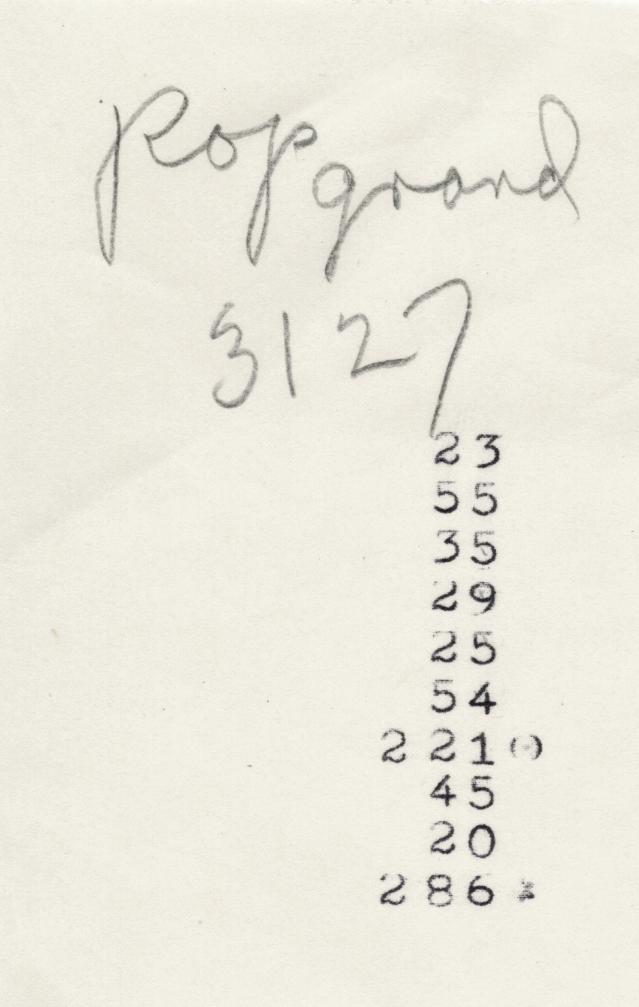 Pop grand
3127
23
55
35
29
25
54
2 21
45
20
2 86 *